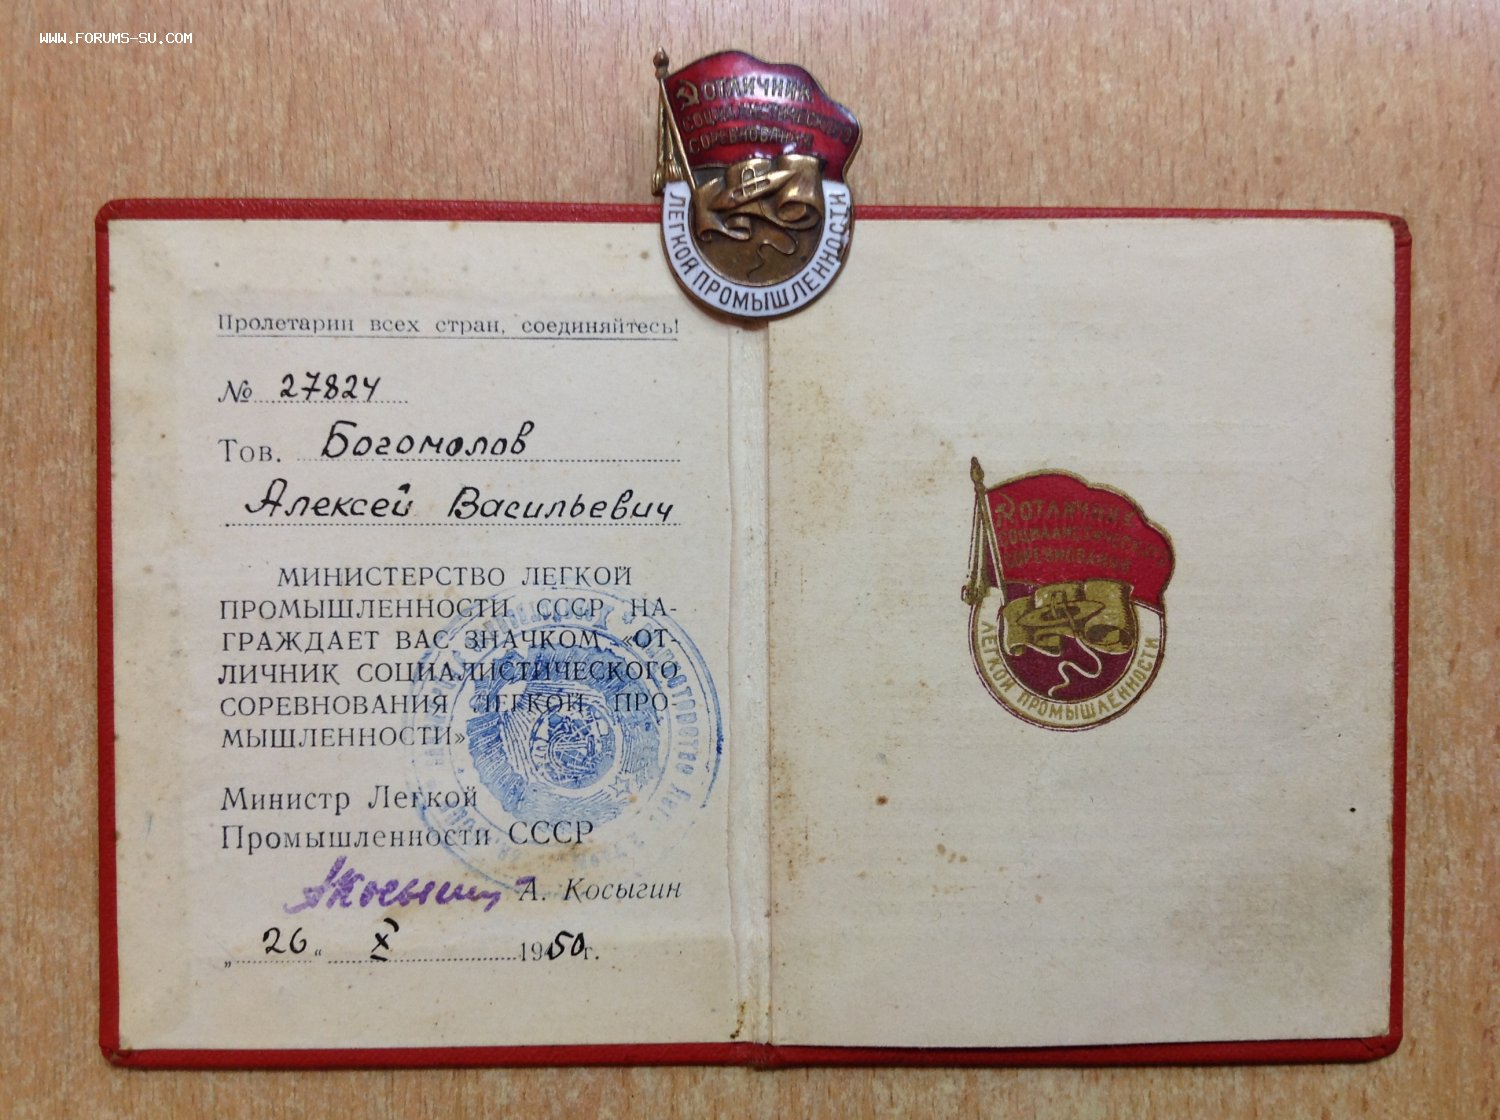 WWW.FORUMS-SU.COM
ОТЛИЧНИК
СОЦИАЛИСТИЧЕСКОГО
СОРЕВНОВАНИЯ
ЛЕГКОЙ ПРОМЫШЛЕННОСТИ
Пролетарии всех стран, соединяйтесь!
№ 27824
Тов. Богомолов
Алексей Васильевич
МИНИСТЕРСТВО ЛЕГКОЙ
ПРОМЫШЛЕННОСТИ СССР НА-
ГРАЖДАЕТ ВАС ЗНАЧКОМ «ОТ-
ЛИЧНИК СОЦИАЛИСТИЧЕСКОГО
СОРЕВНОВАНИЯ ЛЕГКОЙ ПРО-
МЫШЛЕННОСТИ»
Министр Легкой
Промышленности СССР
АКосыгин А. Косыгин
„26“ X 1950 г.
ОТЛИЧНИК
СОЦИАЛИСТИЧЕСКОГО
СОРЕВНОВАНИЯ
ЛЕГКОЙ ПРОМЫШЛЕННОСТИ